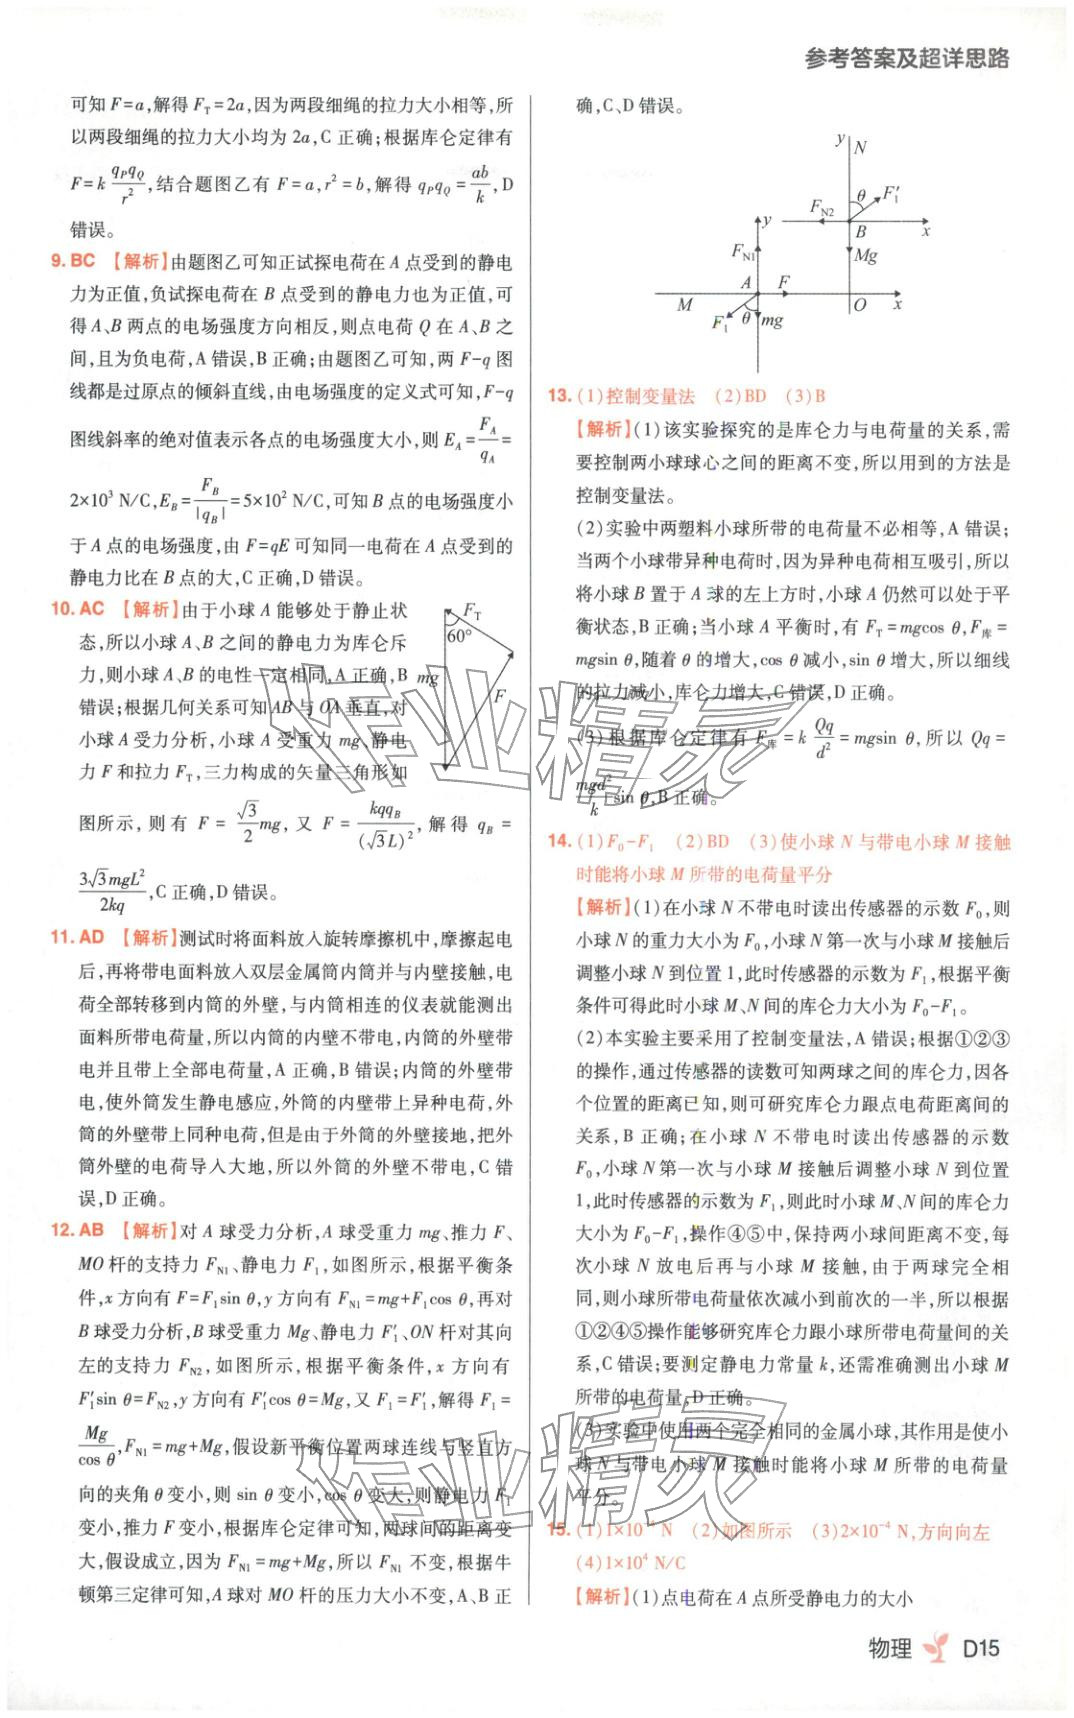 参考答案及超详思路
可知 F=a,解得 F_T=2a,因为两段细绳的拉力大小相等,所
以两段细绳的拉力大小均为 2a,C 正确;根据库仑定律有
F=k q_P q_Q / r²,结合题图乙有 F=a,r²=b,解得 q_P q_Q = ab/k,D
错误。
9. BC 【解析】由题图乙可知正试探电荷在 A 点受到的静电
力为正值,负试探电荷在 B 点受到的静电力也为正值,可
得 A、B 两点的电场强度方向相反,则点电荷 Q 在 A、B 之
间,且为负电荷,A 错误,B 正确;由题图乙可知,两 F-q 图
线都是过原点的倾斜直线,由电场强度的定义式可知,F-q
图线斜率的绝对值表示各点的电场强度大小,则 E_A = F_A/q_A =
2×10³ N/C,E_B = F_B/|q_B| = 5×10² N/C,可知 B 点的电场强度小
于 A 点的电场强度,由 F=qE 可知同一电荷在 A 点受到的
静电力比在 B 点的大,C 正确,D 错误。
10. AC 【解析】由于小球 A 能够处于静止状
态,所以小球 A、B 之间的静电力为库仑斥
力,则小球 A、B 的电性一定相同,A 正确,B
错误;根据几何关系可知 AB 与 OA 垂直,对
小球 A 受力分析,小球 A 受重力 mg、静电
力 F 和拉力 F_T,三力构成的矢量三角形如
图所示,则有 F = √3/2 mg,又 F = kqq_B/(√3L)²,解得 q_B =
3√3mgL²/2kq,C 正确,D 错误。
F_T
60°
mg
F
11. AD 【解析】测试时将面料放入旋转摩擦机中,摩擦起电
后,再将带电面料放入双层金属筒内筒并与内壁接触,电
荷全部转移到内筒的外壁,与内筒相连的仪表就能测出
面料所带电荷量,所以内筒的内壁不带电,内筒的外壁带
电并且带上全部电荷量,A 正确,B 错误;内筒的外壁带
电,使外筒发生静电感应,外筒的内壁带上异种电荷,外
筒的外壁带上同种电荷,但是由于外筒的外壁接地,把外
筒外壁的电荷导入大地,所以外筒的外壁不带电,C 错
误,D 正确。
12. AB 【解析】对 A 球受力分析,A 球受重力 mg、推力 F、
MO 杆的支持力 F_N1、静电力 F₁,如图所示,根据平衡条
件,x 方向有 F=F₁sin θ,y 方向有 F_N1=mg+F₁cos θ,再对
B 球受力分析,B 球受重力 Mg、静电力 F′₁、ON 杆对其向
左的支持力 F_N2,如图所示,根据平衡条件,x 方向有
F′₁sin θ=F_N2,y 方向有 F′₁cos θ=Mg,又 F₁=F′₁,解得 F₁=
Mg/cos θ,F_N1=mg+Mg,假设新平衡位置两球连线与竖直方
向的夹角 θ 变小,则 sin θ 变小,cos θ 变大,则静电力 F₁
变小,推力 F 变小,根据库仑定律可知,两球间的距离变
大,假设成立,因为 F_N1=mg+Mg,所以 F_N1 不变,根据牛
顿第三定律可知,A 球对 MO 杆的压力大小不变,A、B 正
确,C、D 错误。
y N
θ F′₁
F_N2
B x
Mg
y
F_N1
A F
M O x
F₁ θ mg
13. (1)控制变量法 (2)BD (3)B
【解析】(1)该实验探究的是库仑力与电荷量的关系,需
要控制两小球球心之间的距离不变,所以用到的方法是
控制变量法。
(2)实验中两塑料小球所带的电荷量不必相等,A 错误;
当两个小球带异种电荷时,因为异种电荷相互吸引,所以
将小球 B 置于 A 球的左上方时,小球 A 仍然可以处于平
衡状态,B 正确;当小球 A 平衡时,有 F_T=mgcos θ,F_库=
mgsin θ,随着 θ 的增大,cos θ 减小,sin θ 增大,所以细线
的拉力减小,库仑力增大,C 错误,D 正确。
(3)根据库仑定律有 F_库=k Qq/d² = mgsin θ,所以 Qq=
mgd²/k sin θ,B 正确。
14. (1)F₀-F₁ (2)BD (3)使小球 N 与带电小球 M 接触
时能将小球 M 所带的电荷量平分
【解析】(1)在小球 N 不带电时读出传感器的示数 F₀,则
小球 N 的重力大小为 F₀,小球 N 第一次与小球 M 接触后
调整小球 N 到位置 1,此时传感器的示数为 F₁,根据平衡
条件可得此时小球 M、N 间的库仑力大小为 F₀-F₁。
(2)本实验主要采用了控制变量法,A 错误;根据①②③
的操作,通过传感器的读数可知两球之间的库仑力,因各
个位置的距离已知,则可研究库仑力跟点电荷距离间的
关系,B 正确;在小球 N 不带电时读出传感器的示数
F₀,小球 N 第一次与小球 M 接触后调整小球 N 到位置
1,此时传感器的示数为 F₁,则此时小球 M、N 间的库仑力
大小为 F₀-F₁,操作④⑤中,保持两小球间距离不变,每
次小球 N 放电后再与小球 M 接触,由于两球完全相
同,则小球所带电荷量依次减小到前次的一半,所以根据
①②④⑤操作能够研究库仑力跟小球所带电荷量间的关
系,C 错误;要测定静电力常量 k,还需准确测出小球 M
所带的电荷量,D 正确。
(3)实验中使用两个完全相同的金属小球,其作用是使小
球 N 与带电小球 M 接触时能将小球 M 所带的电荷量
平分。
15. (1)1×10⁻⁴ N (2)如图所示 (3)2×10⁻⁴ N,方向向左
(4)1×10⁴ N/C
【解析】(1)点电荷在 A 点所受静电力的大小
物理 D15
作业精灵
作业精灵